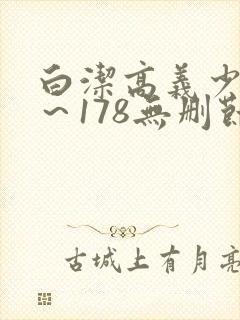 白潔高義少
~178無刪節
古城上有月亮